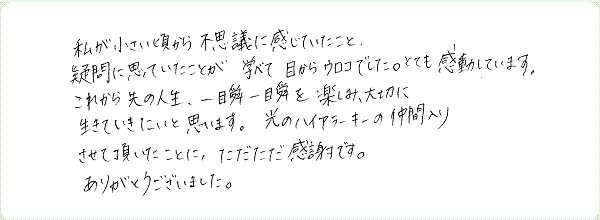 私が小さい頃から不思議に感じていたこと、
疑問に思っていたことが 学べて 目からウロコでした。とても感動しています。
これから先の人生、一瞬一瞬を楽しみ、大切に
生きていきたいと思います。 光のハイアラーキーの仲間入り
させて頂いたことに、ただただ感謝です。
ありがとうございました。